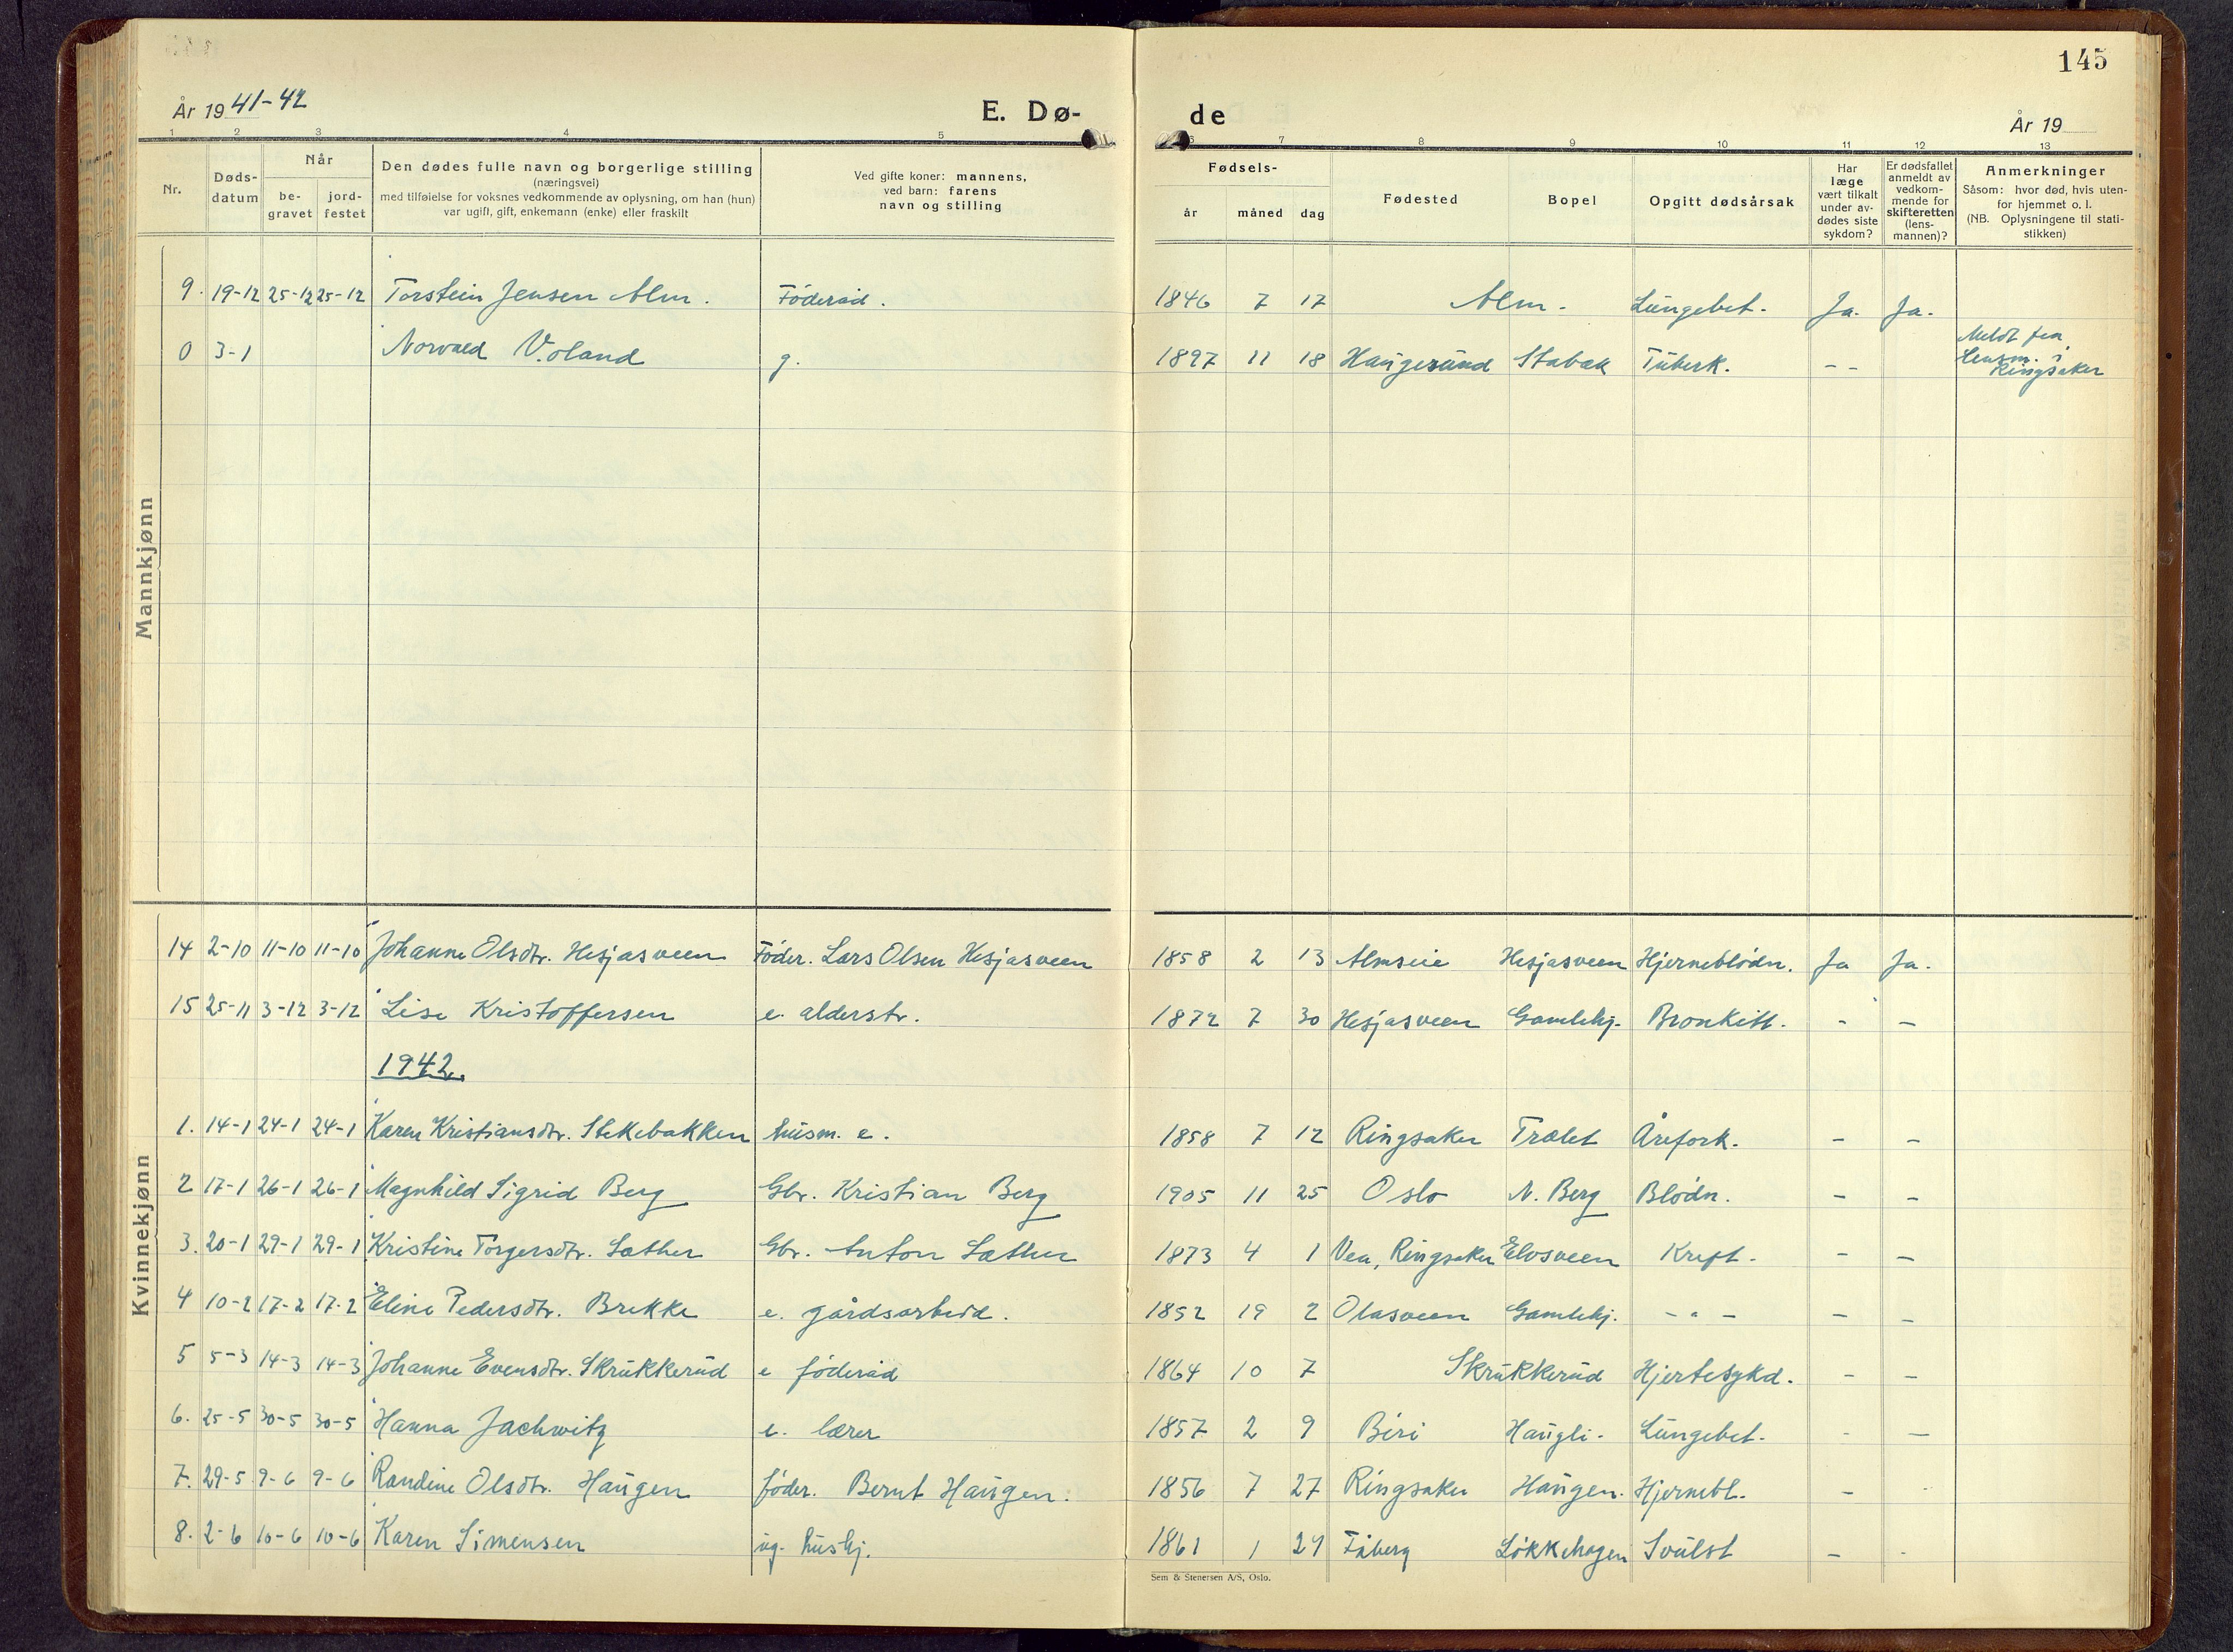 145
År 1941-42
E. Dø-
de
År 19
1 2 3 4 5 6 7 8 9 10 11 12 13
Nr.
Døds-
datum
Når
be-
gravet
jord-
festet
Den dødes fulle navn og borgerlige stilling
(næringsvei)
med tilføielse for voksnes vedkommende av oplysning, om han (hun)
var ugift, gift, enkemann (enke) eller fraskilt
Ved gifte koner: mannens,
ved barn: farens
navn og stilling
Fødsels-
år måned dag
Fødested
Bopel
Opgitt dødsårsak
Har
læge
vært tilkalt
under av-
dødes siste
sykdom?
Er dødsfallet
anmeldt av
vedkom-
mende for
skifteretten
(lens-
mannen)?
Anmerkninger
Såsom: hvor død, hvis uten-
for hjemmet o. l.
(NB. Oplysningene til stati-
stikken)
Mannkjønn
9. 19-12 25-12 25-12 Torstein Jensen Alm. Føderåd. 1846 7 17 Alm. Lungebet. Ja. Ja.
0 3-1 Norvald Voland g. 1897 11 18 Haugesund Stabak Tuberk. - -
Meldt fra
Lensm. i
Ringsaker
Kvinnekjønn
14 2-10 11-10 11-10 Johanne Olsdtr. Hesjasveen Føder. Lars Olsen Hesjasveen 1858 2 13 Almseie Hesjasveen Hjerneblødn. Ja Ja.
15 25-11 3-12 3-12 Lise Kristoffersen e. alderstr. 1872 7 30 Hesjasveen Gamlehj. Bronkitt. - -
1942.
1. 14-1 24-1 24-1 Karen Kristiansdtr. Stekebakken husm. e. 1858 7 12 Ringsaker Trælet Årefork. - -
2 17-1 26-1 26-1 Magnhild Sigrid Berg Gbr. Kristian Berg 1905 11 25 Oslo N. Berg Blødn. - -
3. 20-1 29-1 29-1 Kristine Torgersdtr. Sæther Gbr. Anton Sæther 1873 4 1 Vea, Ringsaker Elvsveen Kreft. - -
4 10-2 17-2 17-2 Eline Pedersdtr. Brekke e. gårdsarbeid. 1852 19 2 Olasveen Gamlehj. - " - - -
5 5-3 14-3 14-3 Johanne Evensdtr. Skrukkerud e føderåd 1864 10 7 Skrukkerud Hjertesykd. - -
6. 25-5 30-5 30-5 Hanna Jachwitz e. lærer 1857 2 9 Biri Haugli. Lungebet. - -
7. 29-5 9-6 9-6 Randine Olsdtr. Haugen føder. Bernt Haugen. 1856 7 27 Ringsaker Haugen. Hjernebl. - -
8. 2-6 10-6 10-6 Karen Simensen ug. hushj. 1861 1 24 Fåberg Løkkehagen Svulst - -
Sem & Stenersen A/S, Oslo.